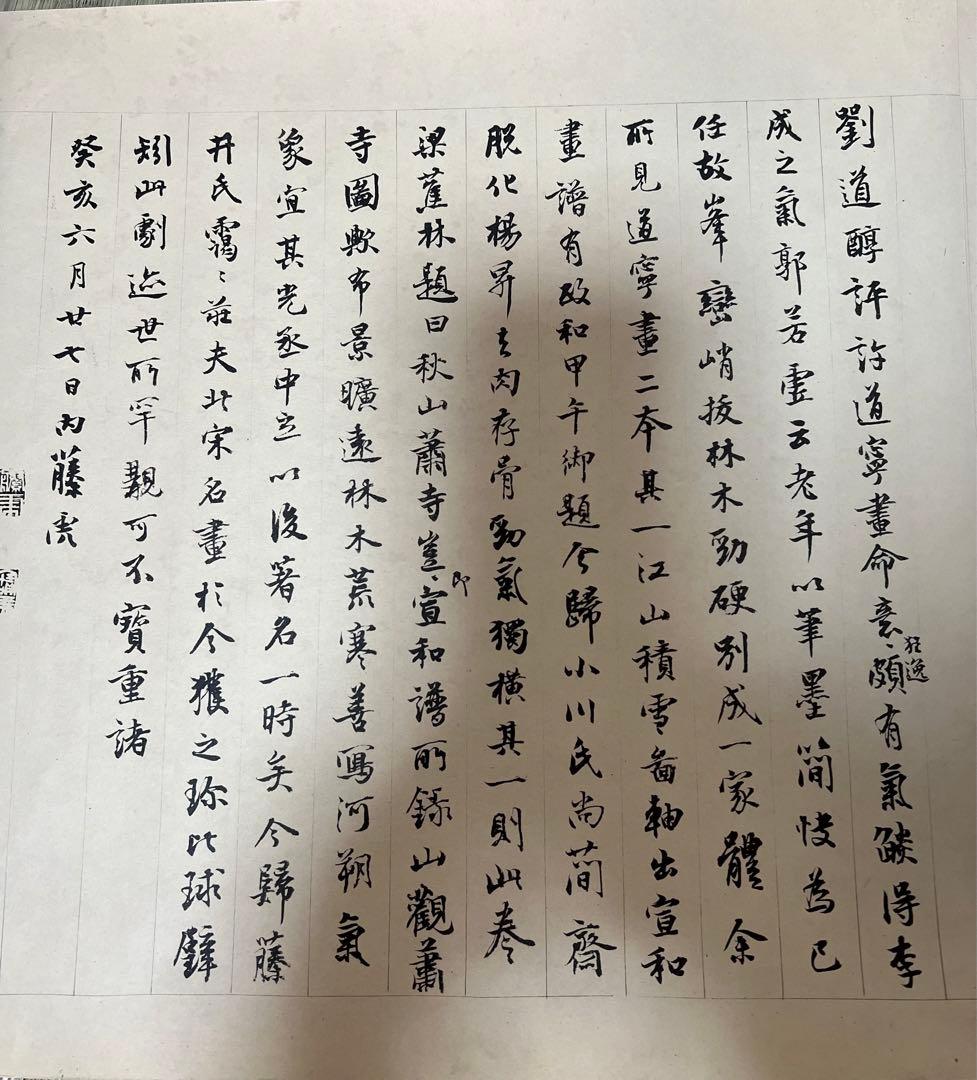 劉道醇評許道寧畫命意狂逸頗有氣燄得李
成之氣郭若虛云老年以筆墨簡快為己
任故峯巒峭拔林木勁硬別成一家體余
所見道寧畫二本其一江山積雪畵軸出宣和
畫譜有政和甲午御題今歸小川氏尚簡齋
脫化楊昇去肉存骨勁氣獨橫其一則此卷
梁蕉林題曰秋山蕭寺豈即宣和譜所錄山觀蕭
寺圖歟布景曠遠林木荒寒善寫河朔氣
象宜其光丞中立以後著名一時矣今歸藤
井氏靄〻莊夫北宋名畫於今獲之珍比球璧
矧此劇迹世所罕覯可不寶重諸
癸亥六月廿七日內藤虎